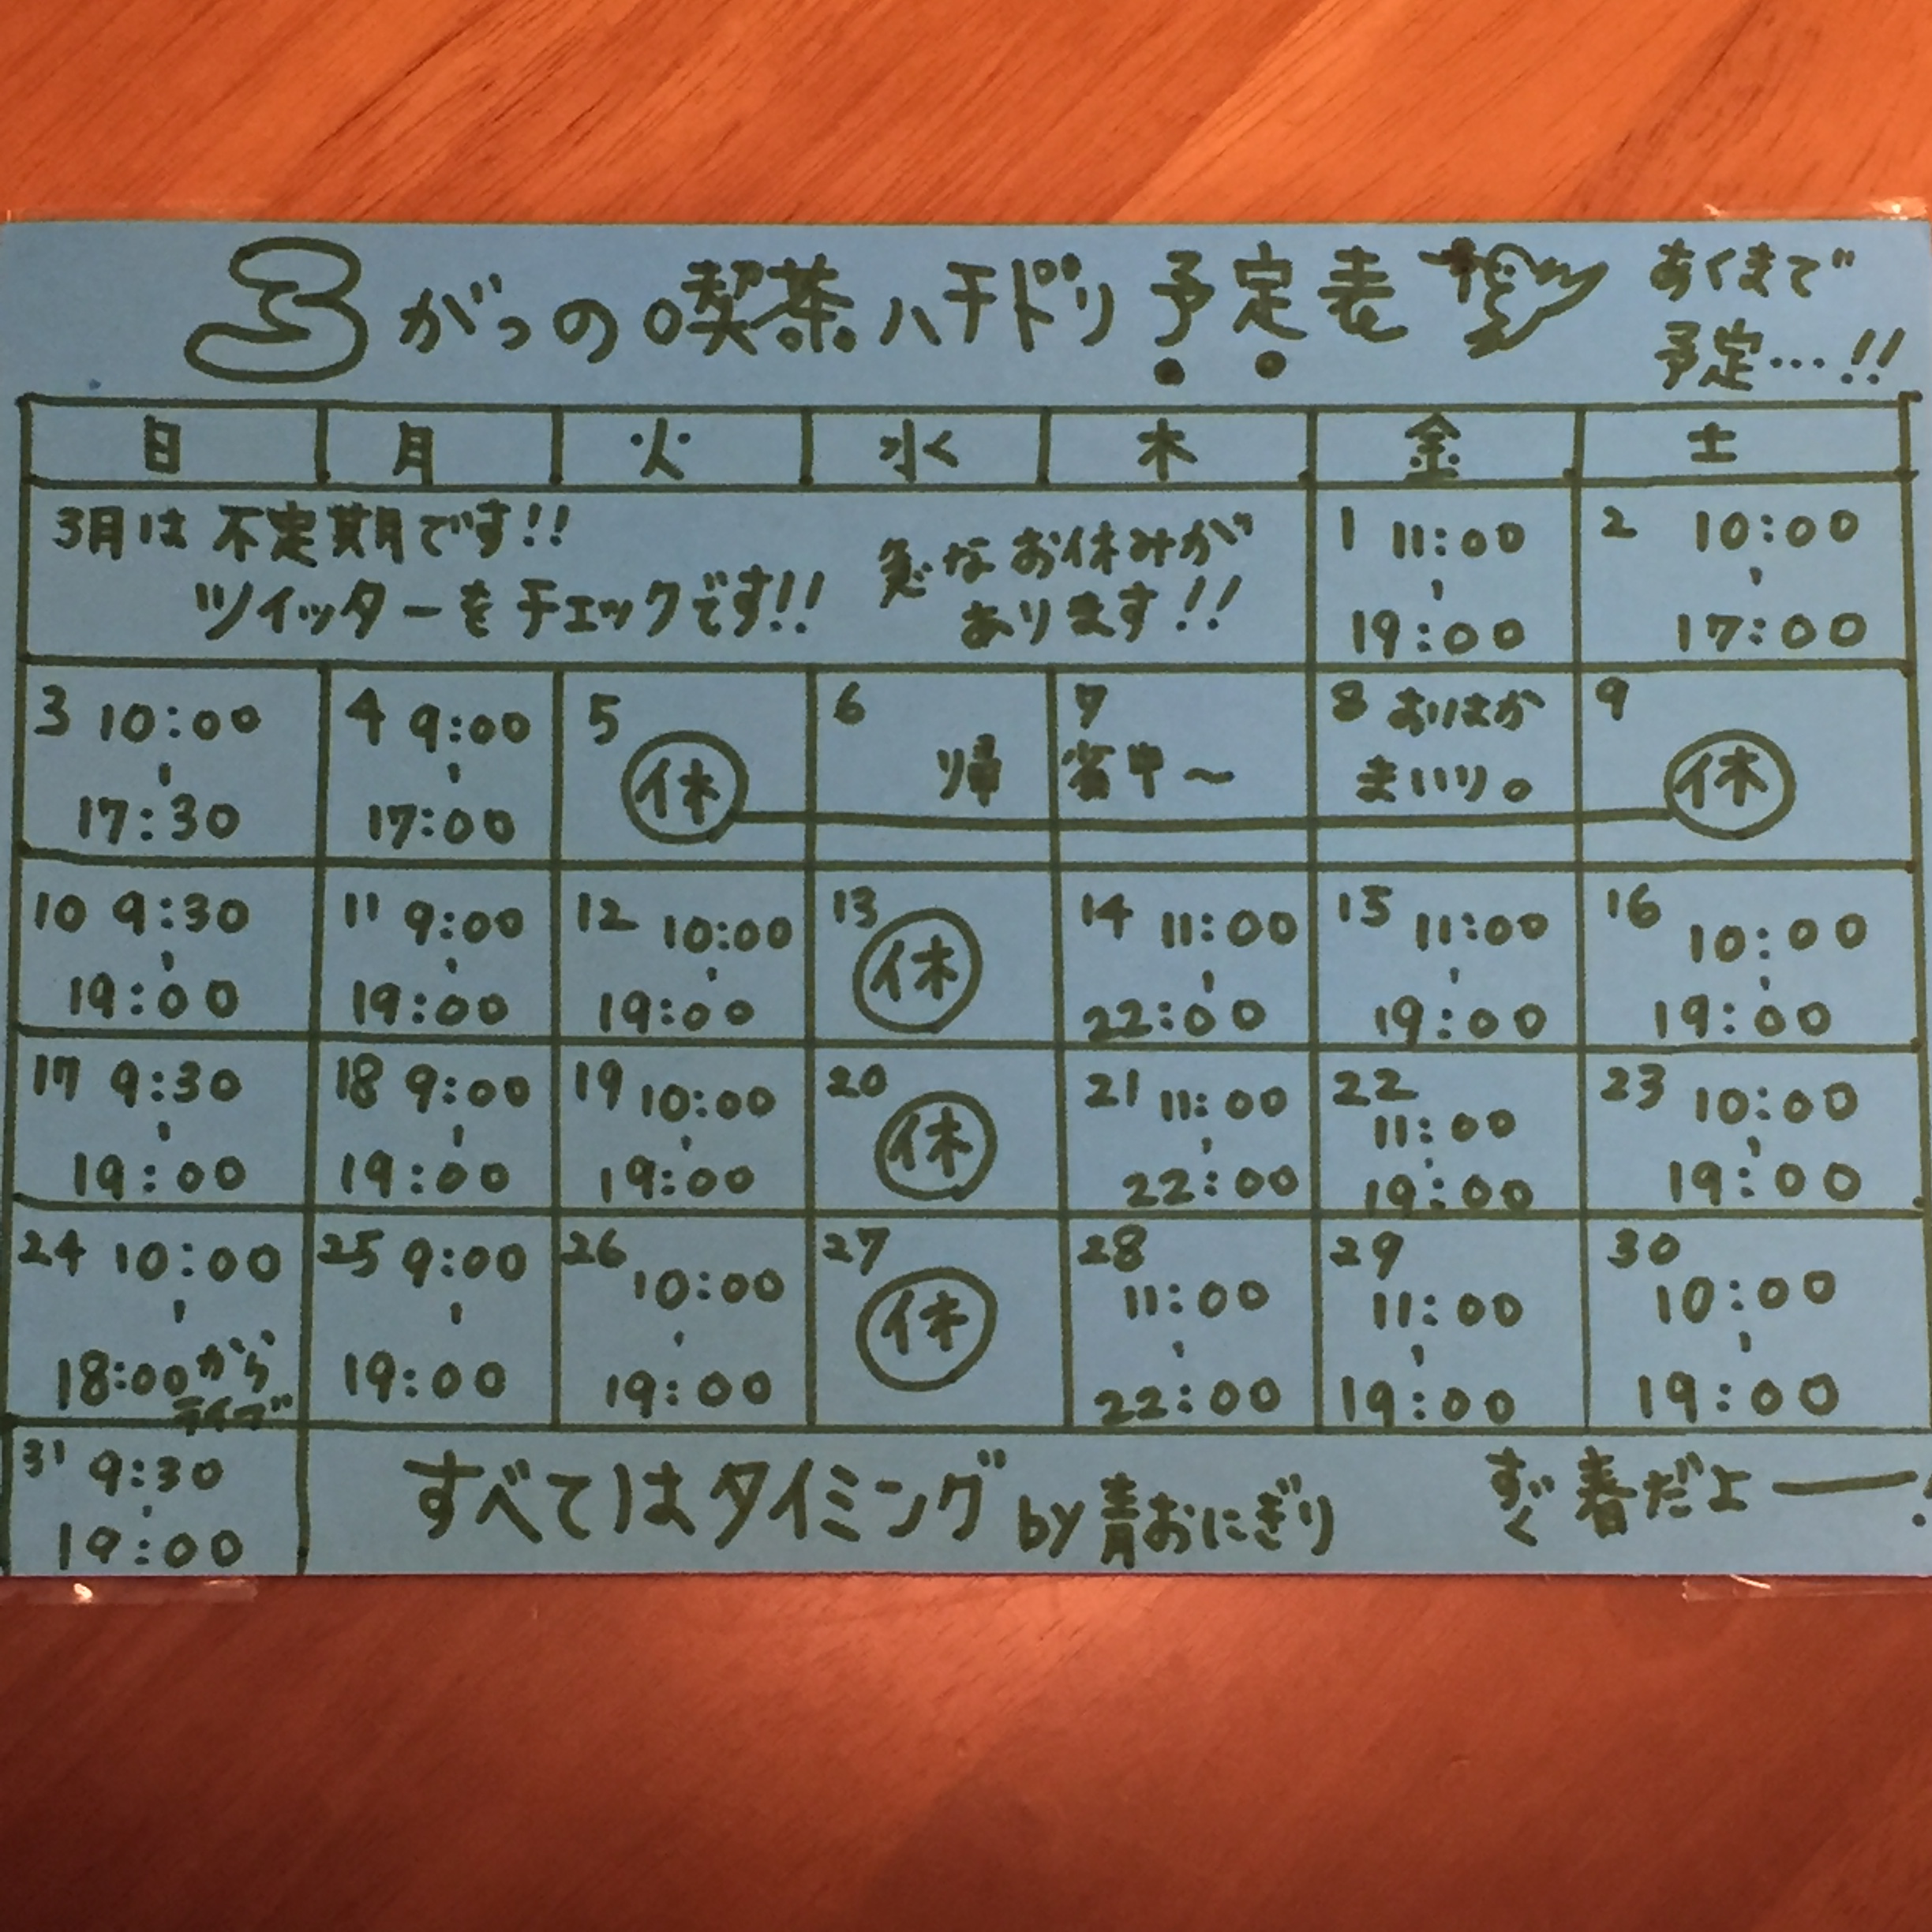 3がつの喫茶ハチドリ予定表
あくまで
予定…!!
日 月 火 水 木 金 土
3月は 不定期です!!
ツイッターをチェックです!!
急なお休みが
あります!!
1 11:00
19:00
2 10:00
17:00
3 10:00
17:30
4 9:00
17:00
5 休
6 帰
7 省中〜
8 おはか
まいり。
9 休
10 9:30
19:00
11 9:00
19:00
12 10:00
19:00
13 休
14 11:00
22:00
15 11:00
19:00
16 10:00
19:00
17 9:30
19:00
18 9:00
19:00
19 10:00
19:00
20 休
21 11:00
22:00
22 11:00
19:00
23 10:00
19:00
24 10:00
18:00から
ライブ
25 9:00
19:00
26 10:00
19:00
27 休
28 11:00
22:00
29 11:00
19:00
30 10:00
19:00
31 9:30
19:00
すべてはタイミング by 青おにぎり
すぐ春だよー!